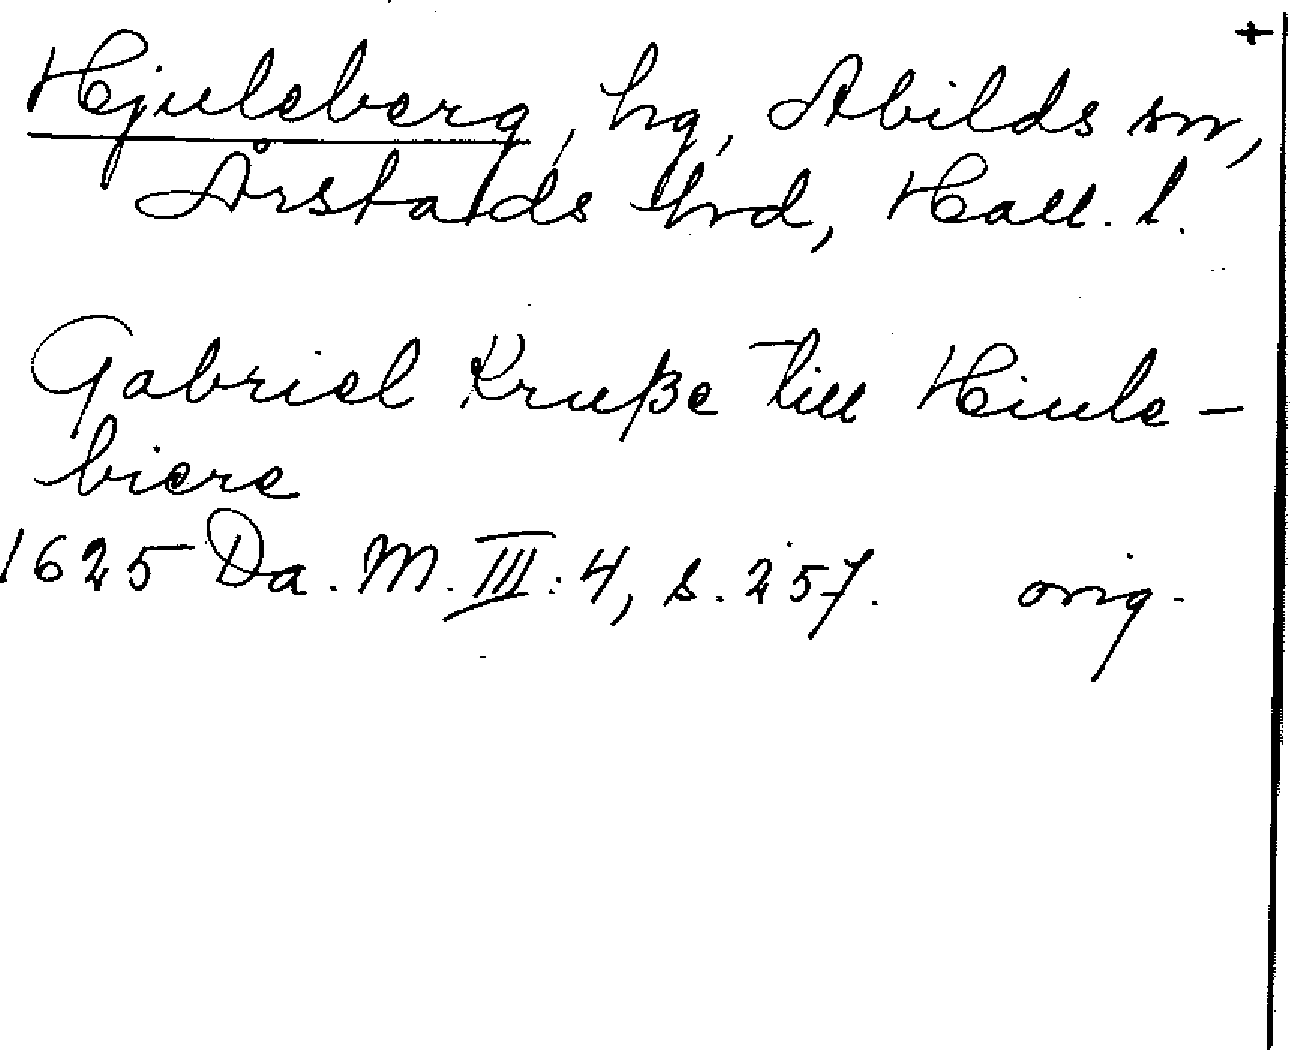 +
Hjuleberg, hg, Abilds sn,
Årstads hrd, Hall. l.
Gabriel Kruße till Hiule-
biere
1625 Da. M. III: 4, s. 257. orig.